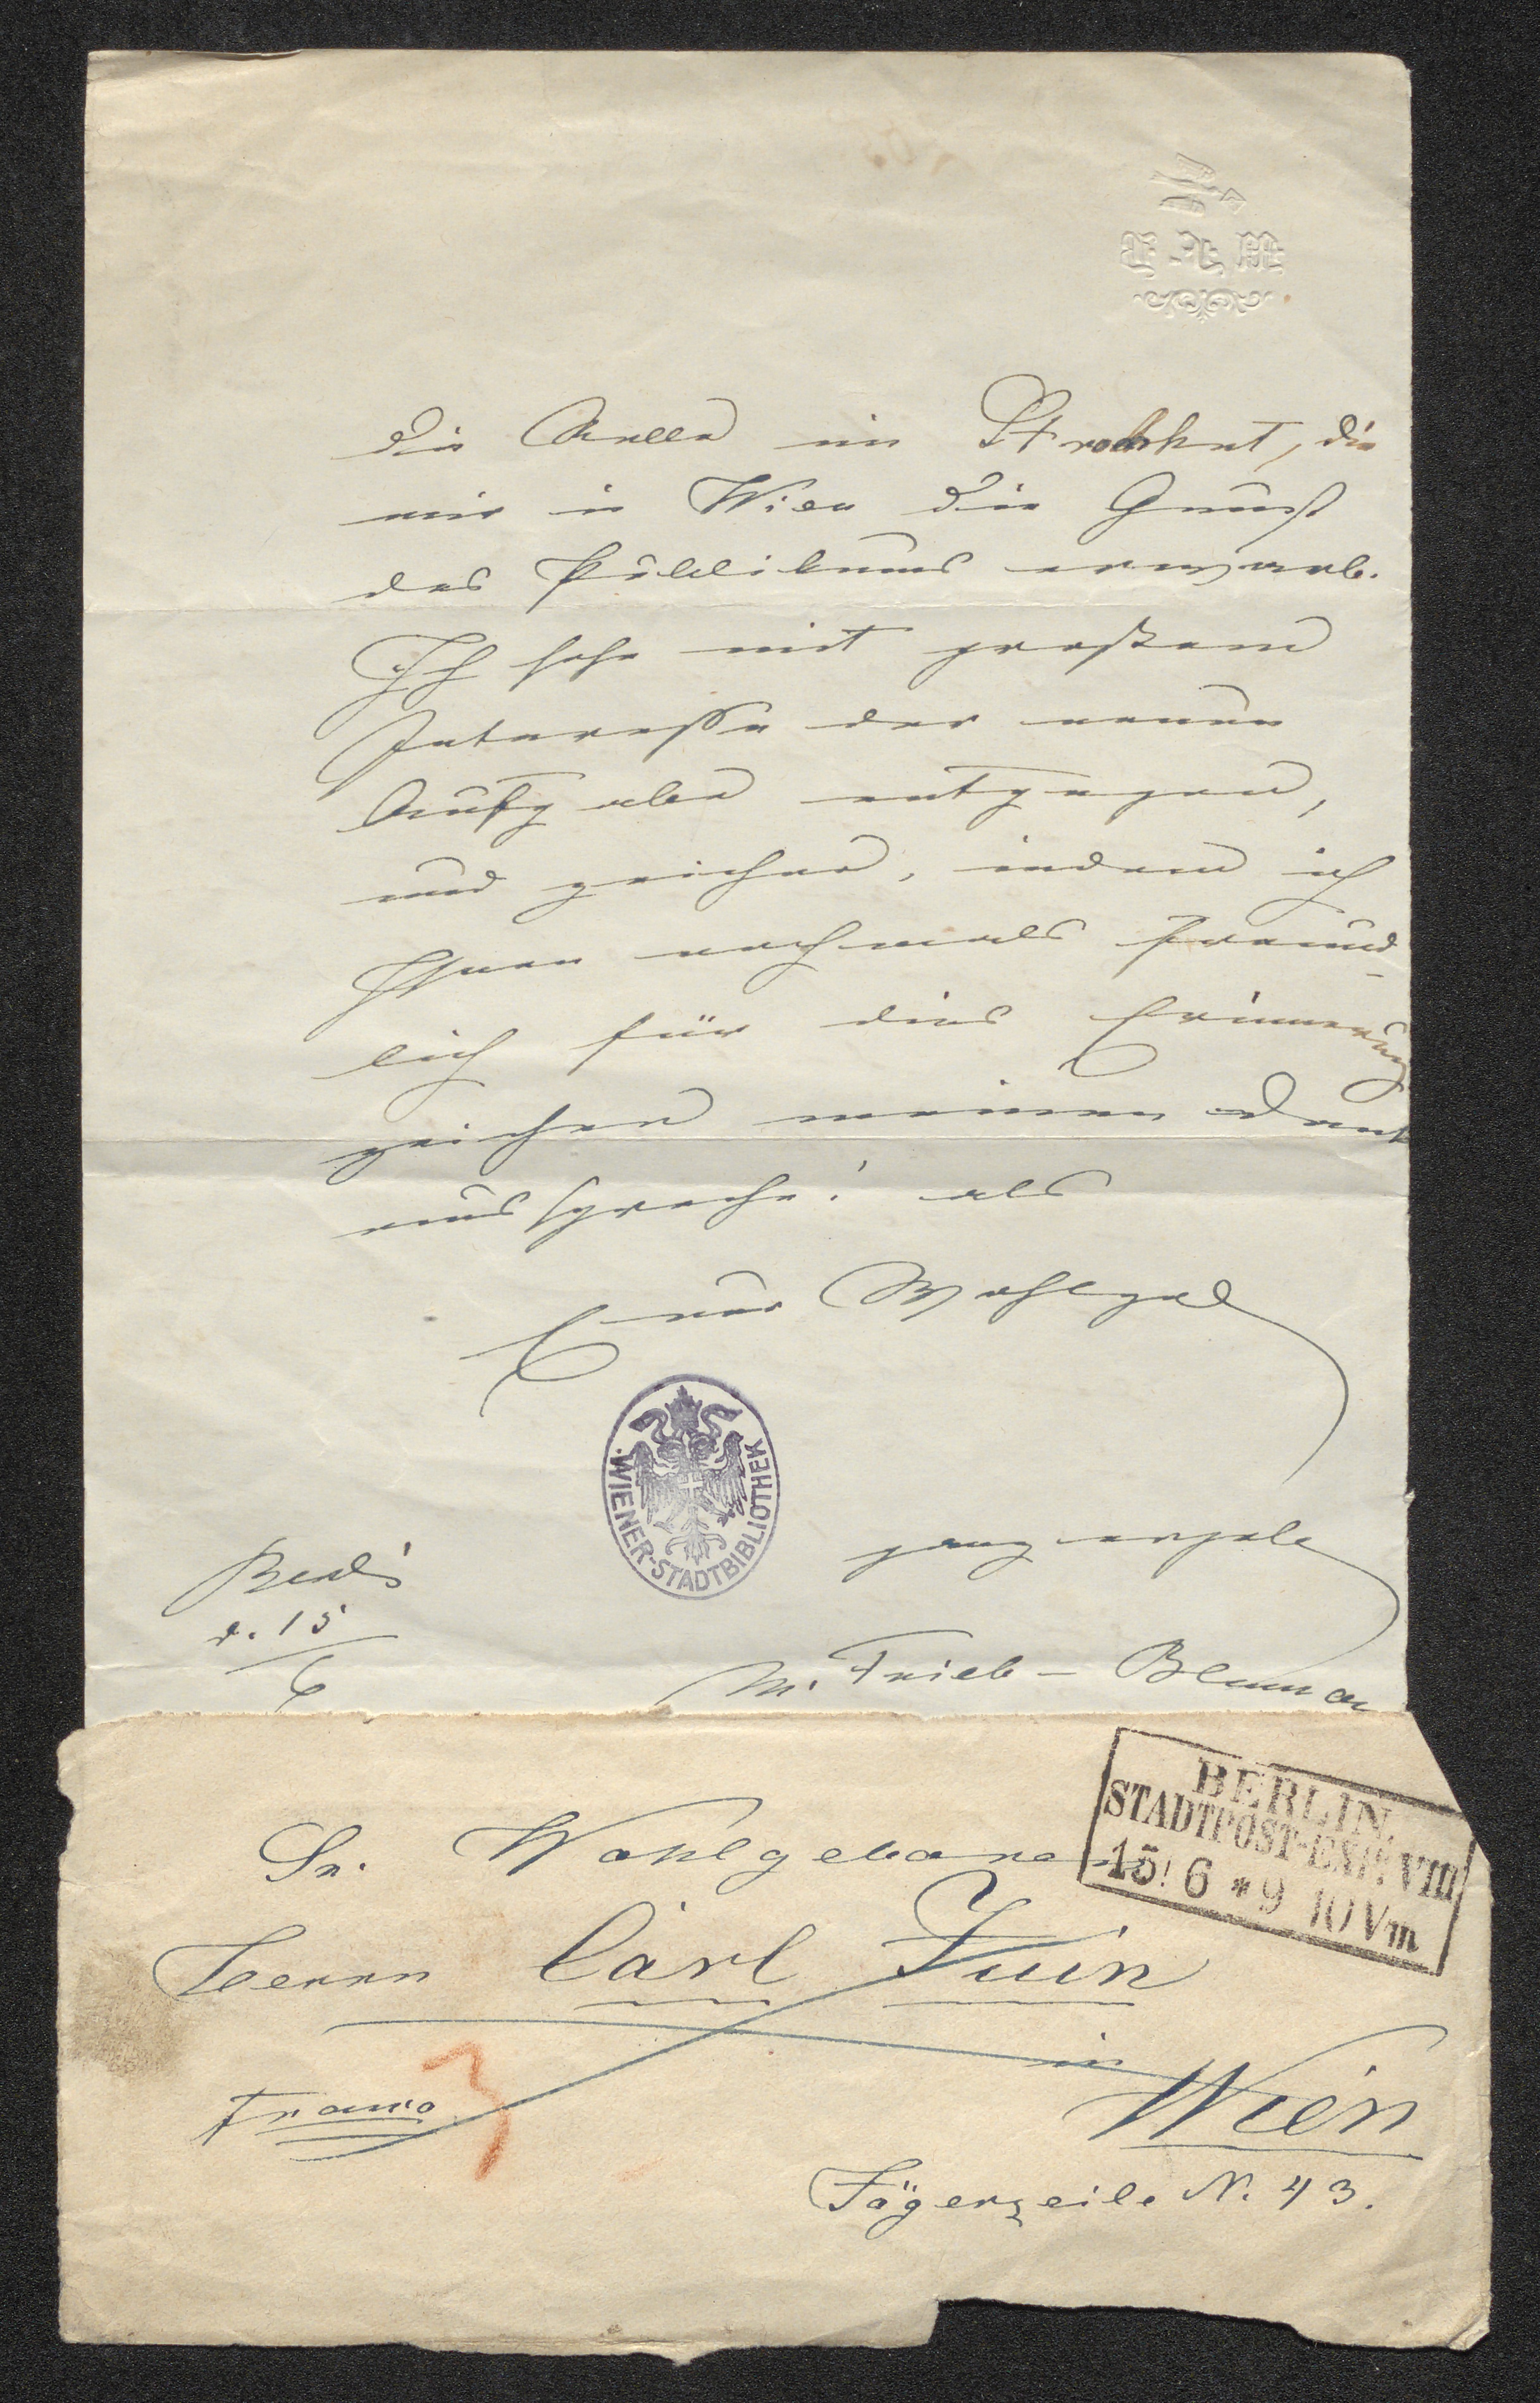 die Rolle im Strohhut, die
mir in Wien die Gunst
des Publikums erwarb.
Ich sehe mit großem
Interesse der neuen
Aufgabe entgegen,
und zeichne, indem ich
Ihnen nochmals freund-
lich für dies Erinnerung
zeichen meinen Dank
ausspreche! als
Euer Wohlgeb
ganz ergebe
Berlin
d. 15
6
M. Frieb-Blumau
WIENER-STADTBIBLIOTHEK
BERLIN.
STADTPOST-EXP. VIII
15! 6 * 9 10 Vm
Sr. Wohlgeboren
Herrn Carl Juin
in
Wien
Franco
3
Jägerzeile N. 43.